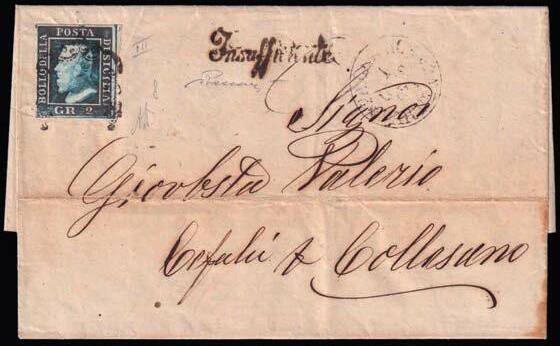 BOLLO DELLA
POSTA
DI SICILIA
GR. 2
Insufficiente
III
8
Signor
Giovbsta Valerio
Cefalù p Collesano